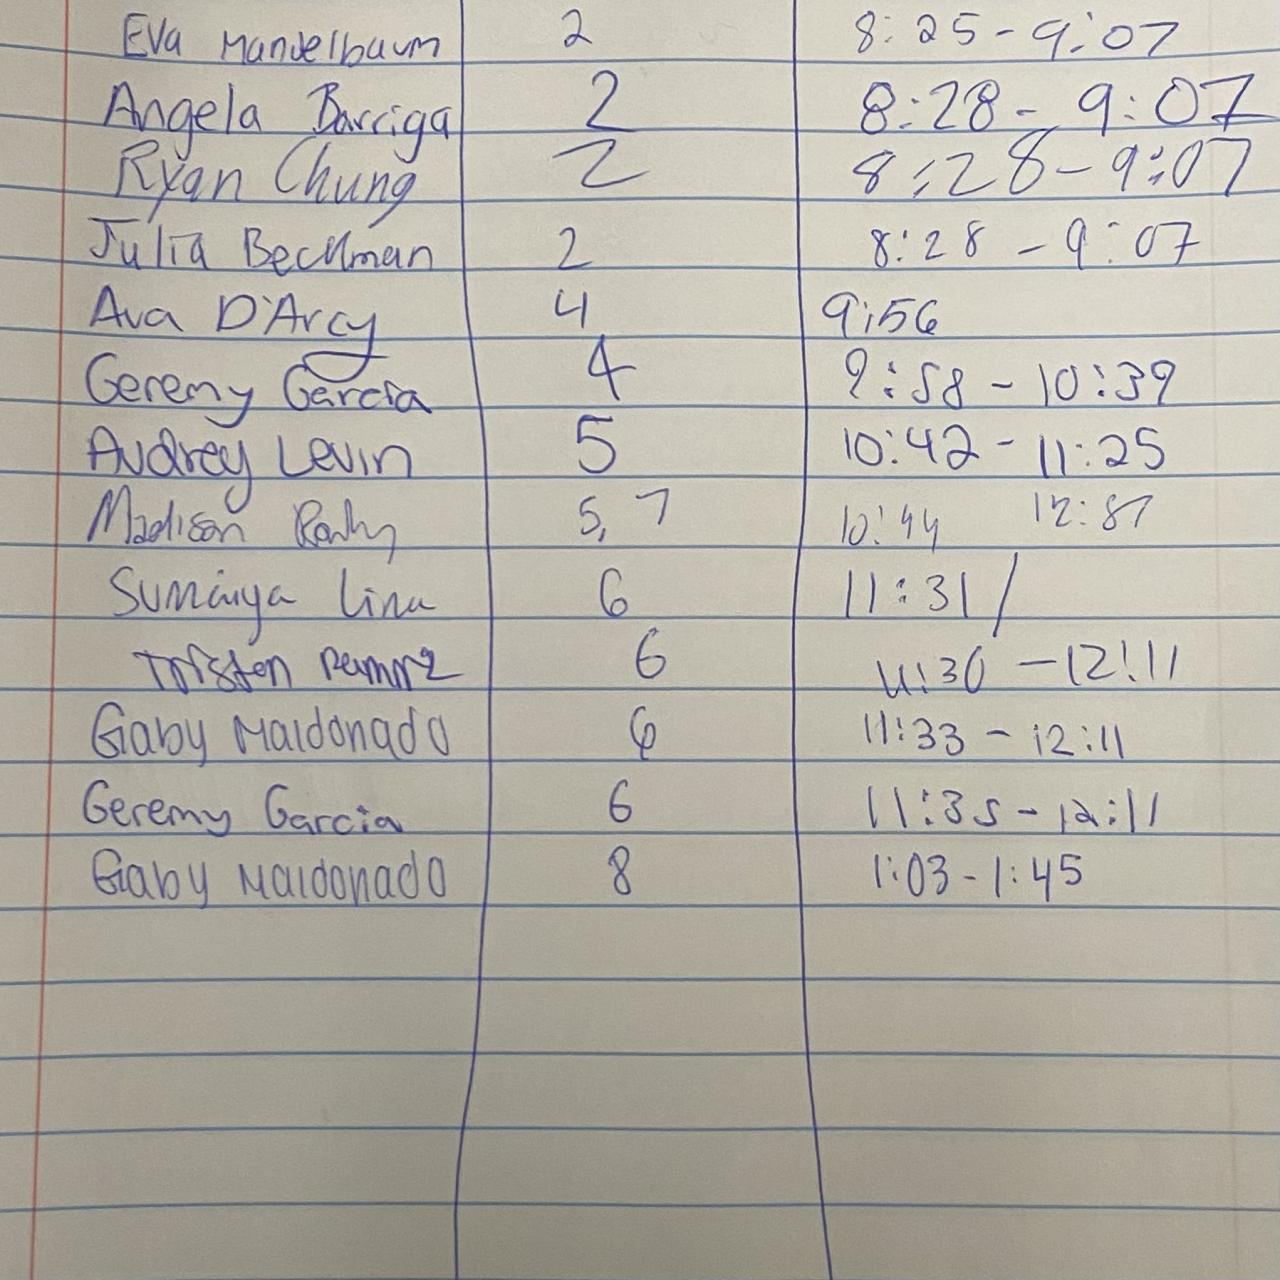 Eva Mandelbaum 2 8:25-9:07
Angela Barriga 2 8:28-9:07
Ryan Chung 2 8:28-9:07
Julia Beckman 2 8:28-9:07
Ava D'Arcy 4 9:56
Geremy Garcia 4 9:58-10:39
Audrey Levin 5 10:42-11:25
Madison 5, 7 10:44
Sumaiya Lina 6 11:31/
Tristen 6 11:30-12:11
Gaby Maldonado 6 11:33-12:11
Geremy Garcia 6 11:35-12:11
Gaby Maldonado 8 1:03-1:45